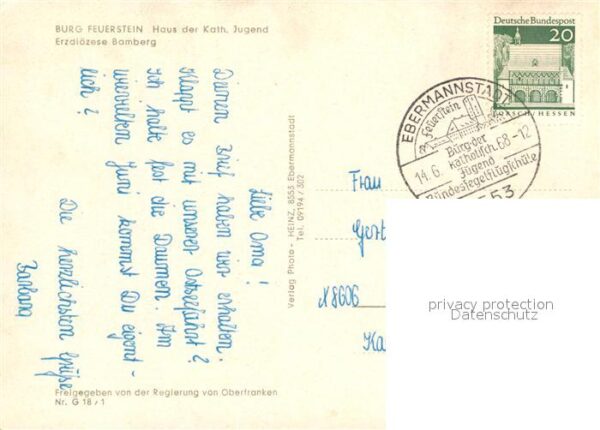 BURG FEUERSTEIN Haus der Kath. Jugend
Erzdiözese Bamberg
Liebe Oma!
Deinen Brief haben wir erhalten.
Klappt es mit unserer Osterfahrt?
Ich halte fest die Daumen. Am
wievielten Juni kommst Du eigent-
lich?
Die herzlichsten Grüße
Barbara
Freigegeben von der Regierung von Oberfranken
Nr. G 18/1
Verlag Photo - HEINZ, 8553 Ebermannstadt
Tel. 09194/302
Deutsche Bundespost
20
LORSCH/HESSEN
EBERMANNSTADT
Feuerstein
Burg der
katholisch.
Jugend
14.6. 68-12
Bundessegelflugschule
8553
Frau
Gert
8606
Ka
privacy protection
Datenschutz